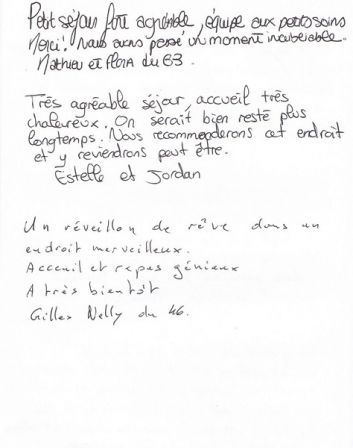 Petit séjour fort agréable, équipe aux petits soins
Merci ! Nous avons passé un moment inoubliable.
Mathieu et Flora du 63.
Très agréable séjour, accueil très
chaleureux. On serait bien resté plus
longtemps. Nous recommenderons cet endroit
et y reviendrons peut être.
Estelle et Jordan
Un réveillon de rêve dans un
endroit merveilleux.
Acceuil et repas géniaux
A très bientôt
Gilles Nelly du 46.